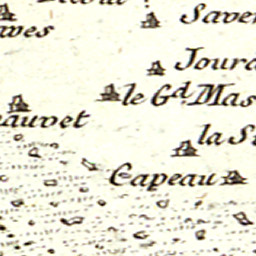 Saver
wes
Joura
le G.d Mas
auvet
la S
Capeau